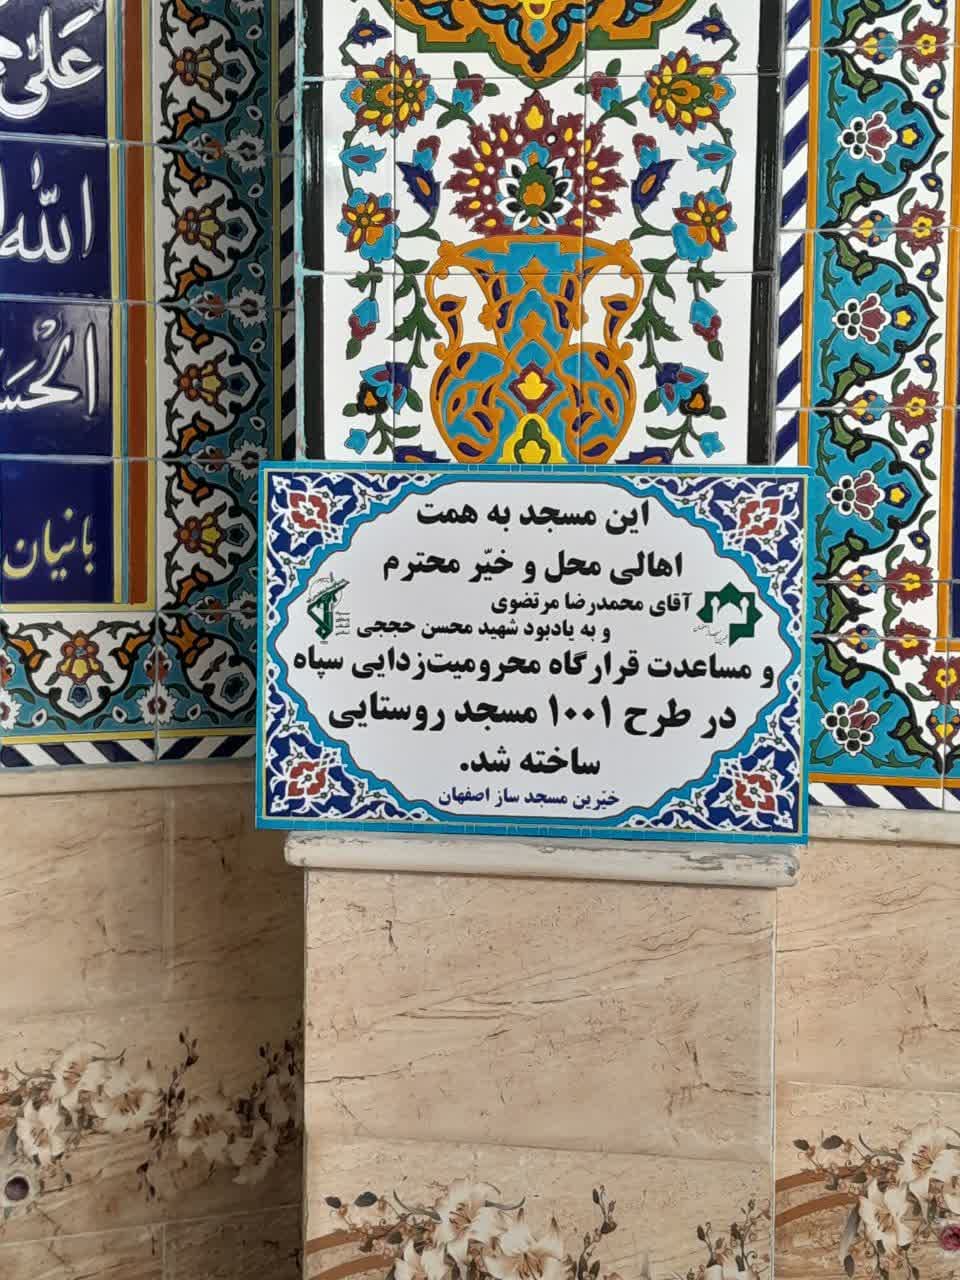 علی
الله
الحس
بانیان
این مسجد به همت
اهالی محل و خیّر محترم
آقای محمدرضا مرتضوی
و به یادبود شهید محسن حججی
و مساعدت قرارگاه محرومیت‌زدایی سپاه
در طرح ۱۰۰۱ مسجد روستایی
ساخته شد.
خیّرین مسجد ساز اصفهان